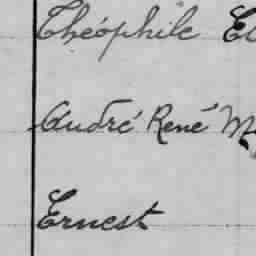 Théophile
André René
Ernest